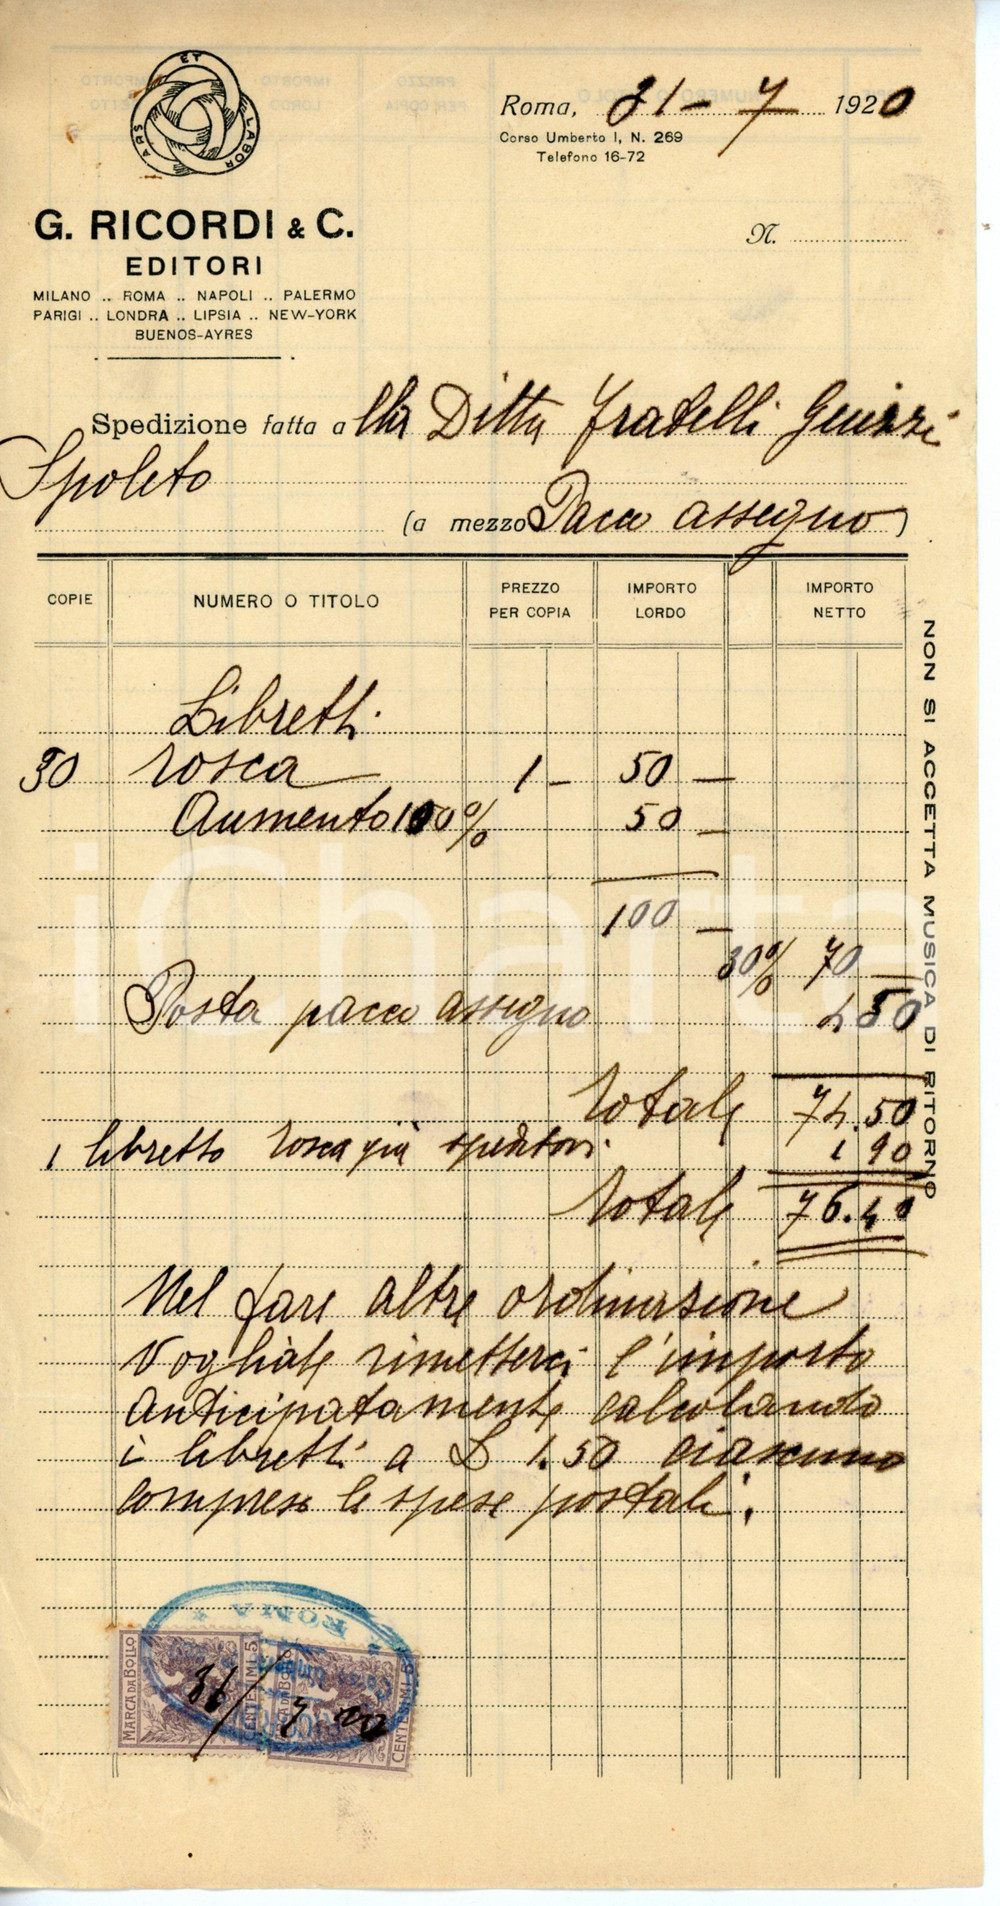 ARS ET LABOR
G. RICORDI & C.
EDITORI
MILANO .. ROMA .. NAPOLI .. PALERMO
PARIGI .. LONDRA .. LIPSIA .. NEW-YORK
BUENOS-AYRES
Roma, 31 - 7 1920
Corso Umberto I, N. 269
Telefono 16-72
N.
Spedizione fatta a lla Ditta Fratelli
Spoleto
(a mezzo Pacco assegno)
COPIE NUMERO O TITOLO PREZZO PER COPIA IMPORTO LORDO IMPORTO NETTO
Libretti
50 Tosca 1 — 50 —
Aumento 100% 50 —
100 —
30% 70 —
Posta pacco assegno 4 50
Totale 74.50
1 libretto Tosca già 1 90
Totale 76.40
Nel fare altre ordinazione
Vogliate rimetterci l'importo
anticipatamente calcolando
i libretti a L 1.50 ciascuno
compreso le spese postali.
NON SI ACCETTA MUSICA DI RITORNO
ROMA
MARCA DA BOLLO CENTESIMI 5
MARCA DA BOLLO CENTESIMI 5
31/7 20
iCharta